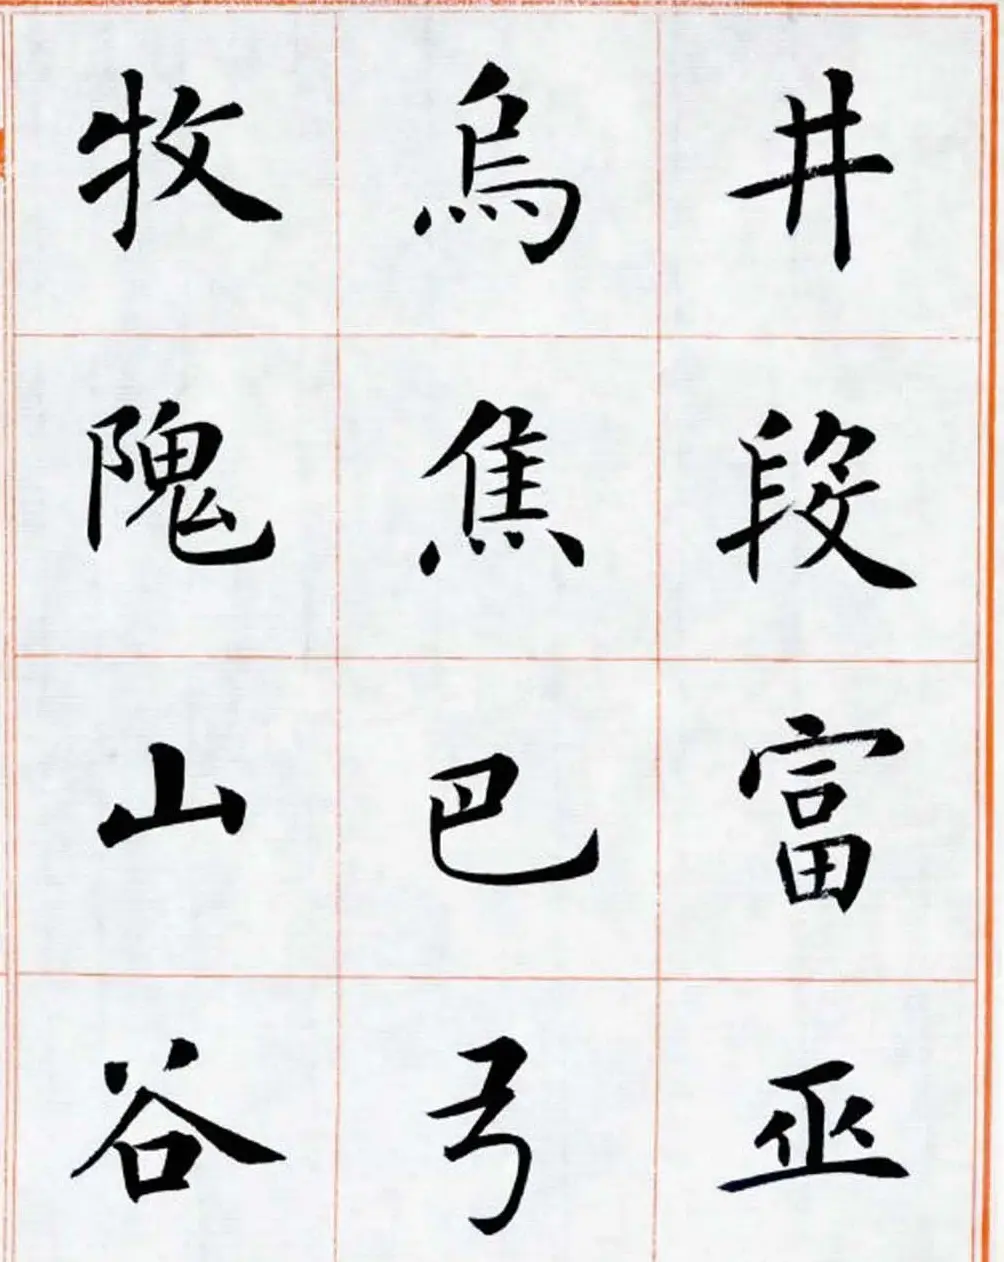 井段富巫
烏焦巴弓
牧隗山谷